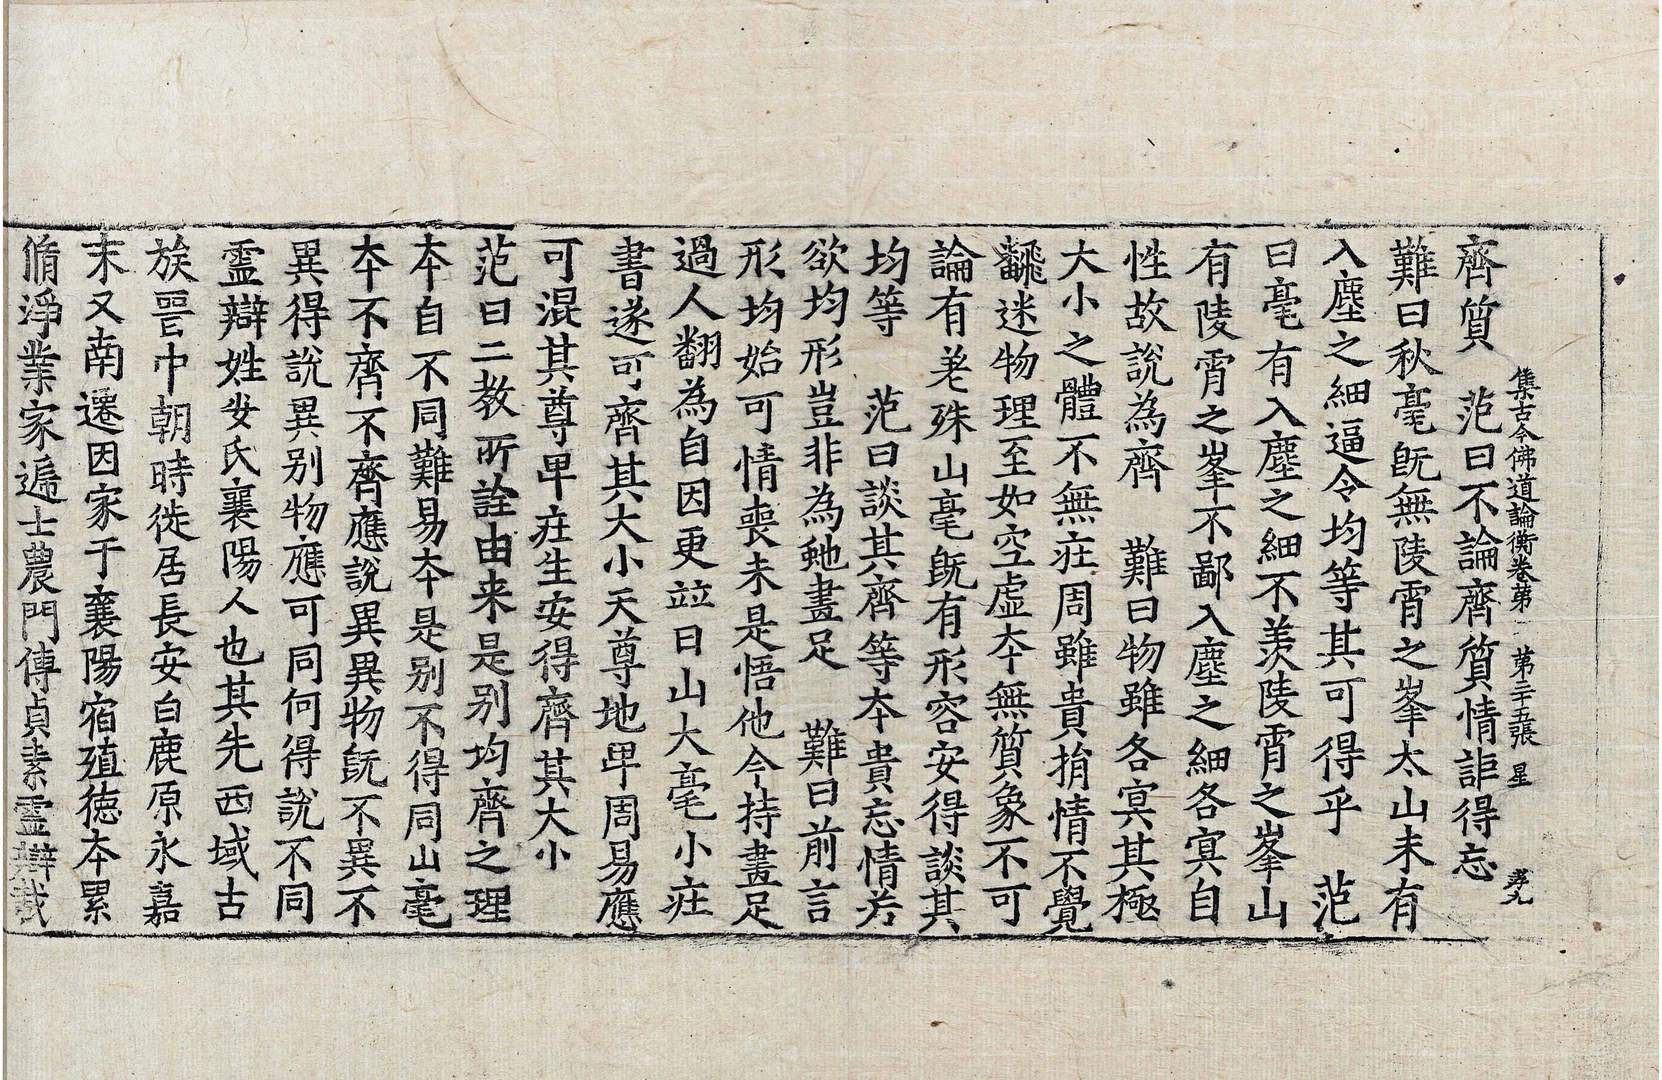 齊質　范曰不論齊質情詎得忘
集古今佛道論衡卷第　第二十五張　星
難曰秋毫旣無陵霄之峯太山未有
入塵之細逼令均等其可得乎　范
曰毫有入塵之細不羨陵霄之峯山
有陵霄之峯不鄙入塵之細各冥自
性故說為齊　難曰物雖各冥其極
大小之體不無莊周雖貴捐情不覺
飜迷物理至如空虛本無質象不可
論有差殊山毫旣有形容安得談其
均等　范曰談其齊等本貴忘情若
欲均形豈非為虵畫足　難曰前言
形均始可情喪未是悟他今持畫足
過人翻為自因更並曰山大毫小莊
書遂可齊其大小天尊地卑周易應
可混其尊卑莊生安得齊其大小
范曰二教所詮由来是别均齊之理
本自不同難易本是别不得同山毫
本不齊不齊應說異異物旣不異不
異得說異别物應可同何得說不同
靈辯姓安氏襄陽人也其先西域古
族晉中朝時徙居長安白鹿原永嘉
末又南遷因家于襄陽宿殖德本累
脩淨業家遍士農門傳貞素靈辯哉